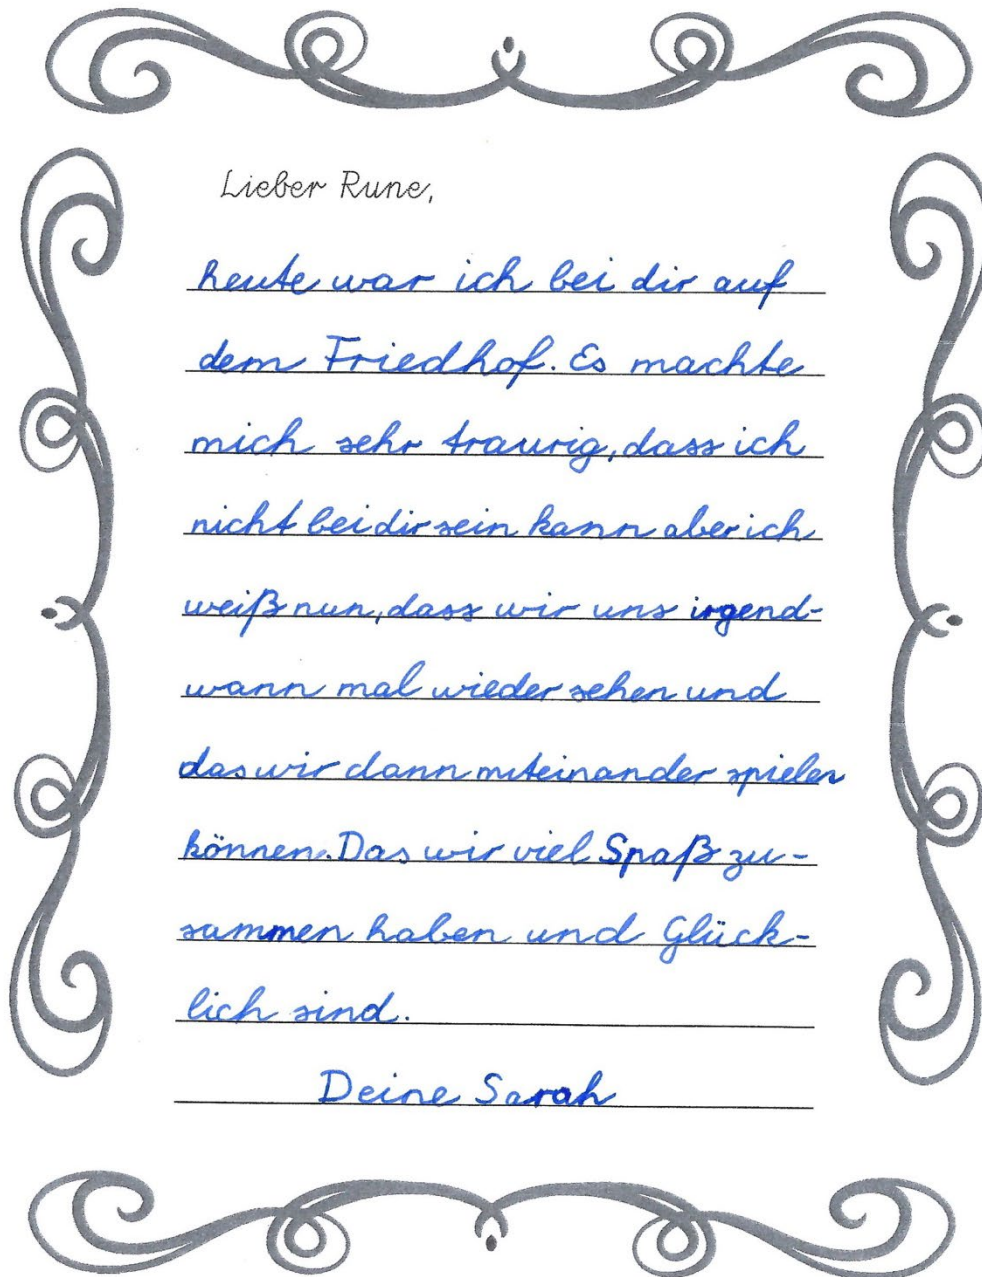 Lieber Rune,
heute war ich bei dir auf
dem Friedhof. Es machte
mich sehr traurig, dass ich
nicht bei dir sein kann aber ich
weiß nun, dass wir uns irgend-
wann mal wieder sehen und
das wir dann miteinander spielen
können. Das wir viel Spaß zu-
sammen haben und Glück-
lich sind.
Deine Sarah